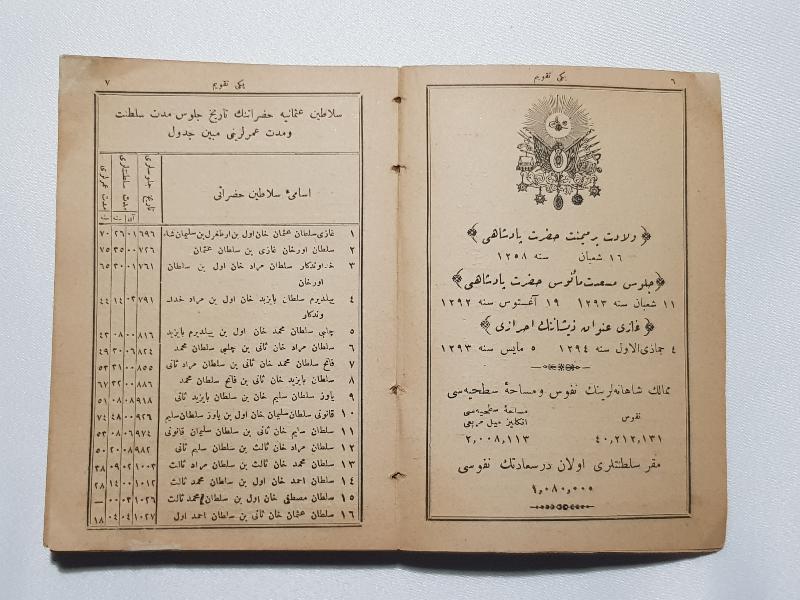 ٦
یكی تقویم
﴿ ولادت برمیمنت حضرت پادشاهی ﴾
١٦ شعبان سنه ١٢٥٨
﴿ جلوس مسعدت مأنوس حضرت پادشاهی ﴾
١١ شعبان سنه ١٢٩٣ ١٩ آغستوس سنه ١٢٩٢
﴿ غازی عنوان ذیشاننك احرازی ﴾
٤ جمازی الاول سنه ١٢٩٤ ٥ مایس سنه ١٢٩٣
ممالك شاهانه لرینك نفوس ومساحهٔ سطحیه سی
نفوس
مساحهٔ سطحیه سی
انكلیز میل مربعی
٤٠,٢١٢,١٣١ ٢,٠٠٨,١١٣
مقر سلطنتلری اولان درسعادتك نفوسی
١,٠٨٠,٠٠٠
٧
یكی تقویم
سلاطین عثمانیه حضراتنك تاریخ جلوس مدت سلطنت
ومدت عمرلرینی مبین جدول
اسامیٔ سلاطین حضراتی
تاریخ جلوسلری
مدت سلطنتلری
مدت عمرلری
١ غازی سلطان عثمان خان اول بن ارطغرل بن سلیمان شاه ٦٩٦ ٢٦ ٧٠
٢ سلطان اورخان غازی بن سلطان عثمان ٧٢٦ ٣٥ ٧٥
٣ خداوندكار سلطان مراد خان اول بن سلطان ٧٦١ ٣٠ ٦٥
اورخان
٤ ییلدیرم سلطان بایزید خان اول بن مراد خدا ٧٩١ ١٤ ٤٤
وندكار
٥ چلبی سلطان محمد خان اول بن ییلدیرم بایزید ٨١٦ ٠٨ ٤٣
٦ سلطان مراد خان ثانی بن چلبی سلطان محمد ٨٢٤ ٣٠ ٤٩
٧ فاتح سلطان محمد خان ثانی بن سلطان مراد ثانی ٨٥٥ ٣١ ٥٣
٨ سلطان بایزید خان ثانی بن فاتح سلطان محمد ٨٨٦ ٣٢ ٦٧
٩ یاوز سلطان سلیم خان بن سلطان بایزید ثانی ٩١٨ ٠٨ ٥١
١٠ قانونی سلطان سلیمان خان اول بن یاوز سلطان سلیم ٩٢٦ ٤٨ ٧٤
١١ سلطان سلیم خان ثانی بن سلطان سلیمان قانونی ٩٧٤ ٠٨ ٥٣
١٢ سلطان مراد خان ثالث بن سلطان سلیم ثانی ٩٨٢ ٢٠ ٥٠
١٣ سلطان محمد خان ثالث بن سلطان مراد ثالث ١٠٠٣ ٠٩ ٣٨
١٤ سلطان احمد خان اول بن سلطان محمد ثالث ١٠١٢ ١٤ ٢٨
١٥ سلطان مصطفی خان اول بن سلطان محمد ثالث ١٠٢٦ ٠٣ ٠٠ —
١٦ سلطان عثمان خان ثانی بن سلطان احمد اول ١٠٢٧ ٠٤ ٠٤ ١٨